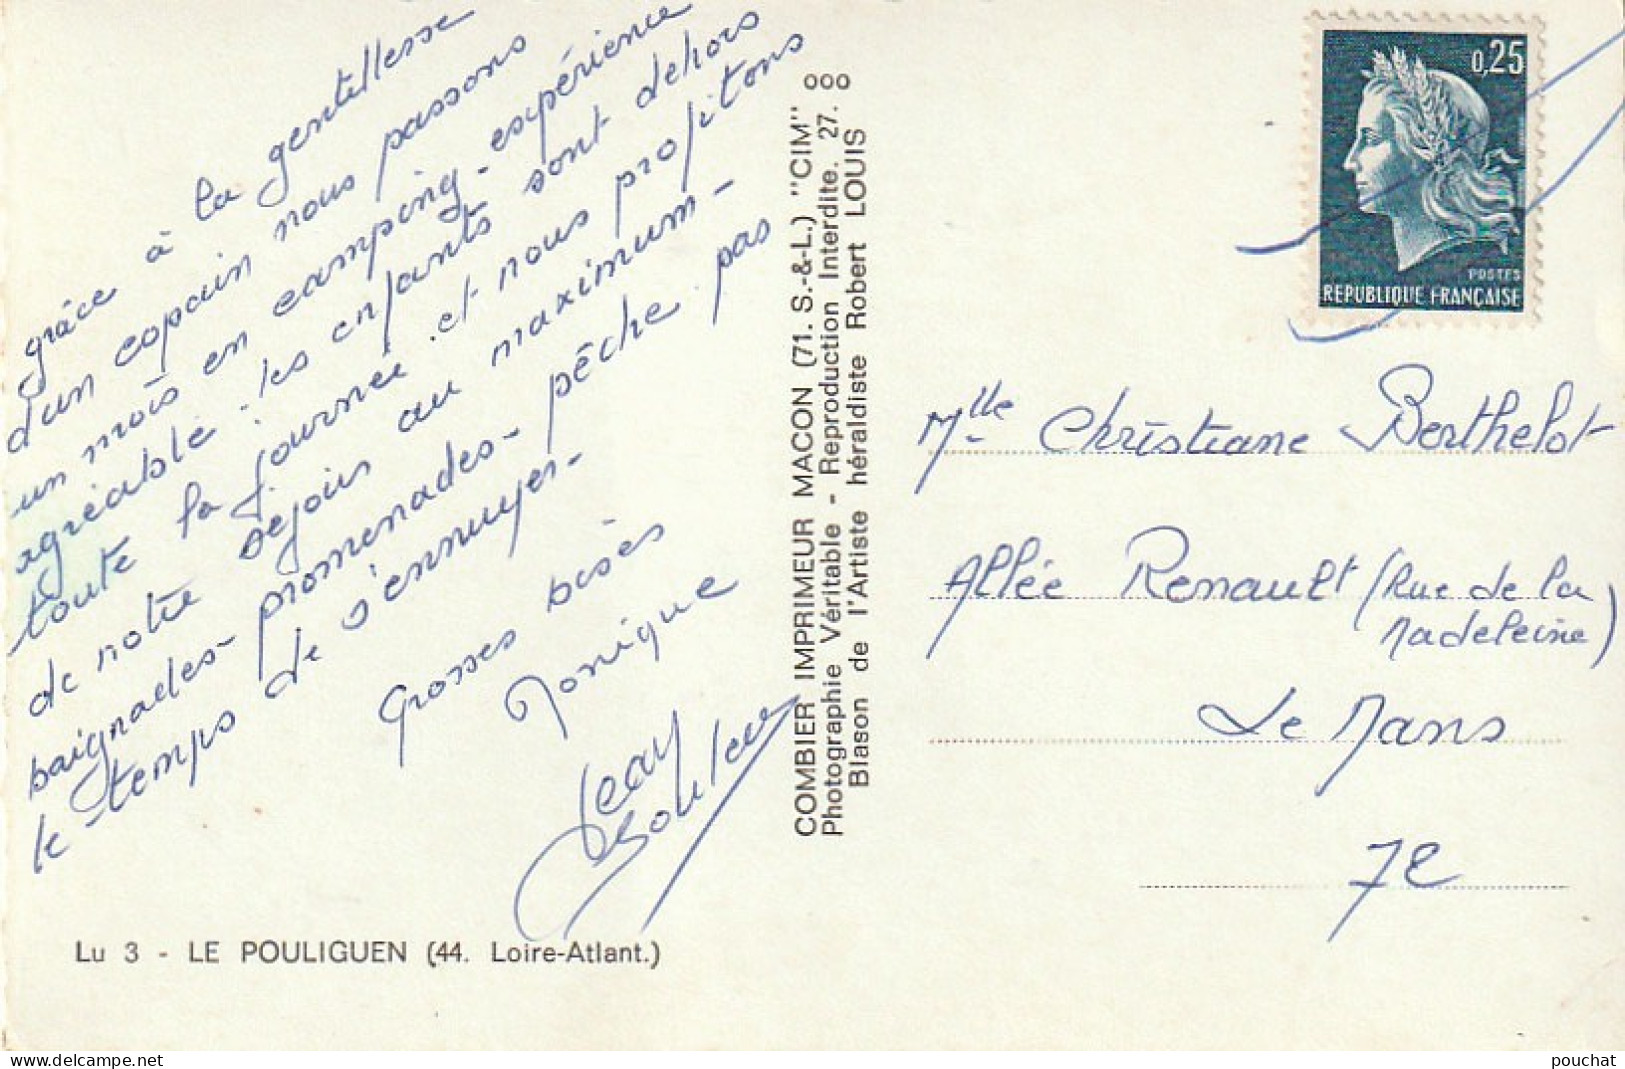 grâce à la gentillesse
d'un copain nous passons
un mois en camping - expérience
agréable. les enfants sont dehors
toute la journée et nous profitons
de notre séjour au maximum -
baignades - promenades - pêche. pas
le temps de s'ennuyer -
Grosses bises
Monique
Jean
COMBIER IMPRIMEUR MACON (71. S.-&-L.) "CIM"
Photographie Véritable - Reproduction Interdite. 27.
Blason de l'Artiste héraldiste Robert LOUIS
0,25
POSTES
REPUBLIQUE FRANÇAISE
Mlle Christiane Berthelot
Allée Renault (Rue de la
Madeleine)
Le Mans
72
Lu 3 - LE POULIGUEN (44. Loire-Atlant.)
delcampe.net
pouchat